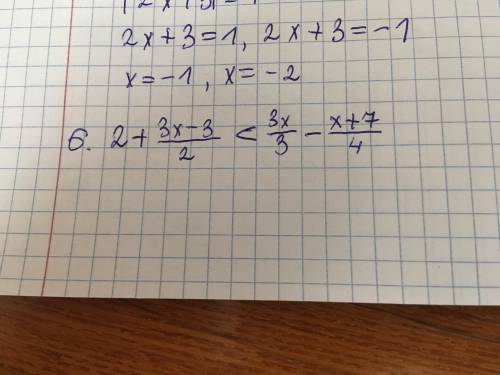 2x + 3 = 1, 2x + 3 = -1
x = -1, x = -2
6. 2 + \frac{3x-3}{2} < \frac{3x}{3} - \frac{x+7}{4}